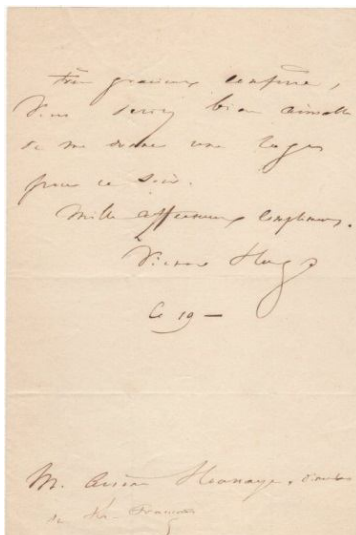 Très gracieux confrère,
Vous seriez bien aimable
de me donner une loge
pour ce soir.
Mille affectueux compliments.
Victor Hugo
Ce 19 —
M. Arsène Houssaye, directeur
du Th. Français